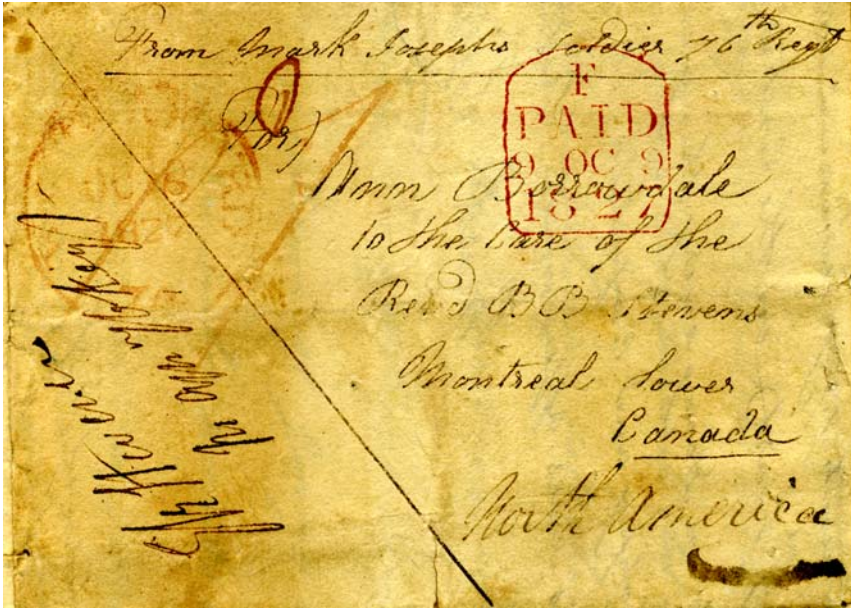 From Mark Josephs Soldier 76th Regt
For,
F
PAID
9 OC 9
1827
Ann Borrowdale
to the Care of the
Revd B B Stevens
Montreal Lower
Canada
North America
OC 6